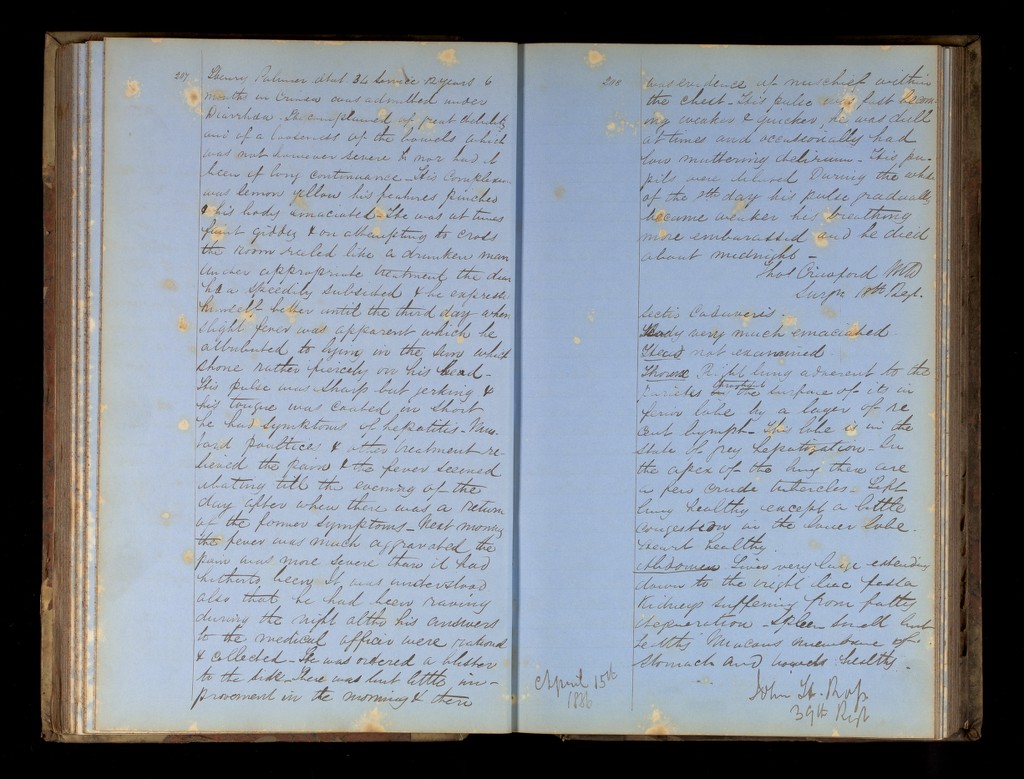 207 Henry Palmer Ætat 34 Service 12 years 6
months in Crimea was admitted under
Diarrhœa. He complained of great debility
and of a looseness of the bowels which
was not however severe & nor had it
been of long continuance. His Complexion
was lemon yellow his features pinched
& his body emaciated. He was at times
faint giddy & on attempting to cross
the room reeled like a drunken man
Under appropriate treatment the diarr
hœa speedily subsided & he expressed
himself better until the third day when
slight fever was apparent which he
attributed to lying in the sun which
shone rather fiercely on his head -
His pulse was sharp but jerking &
his tongue was coated in short
he had symptoms of hepatitis - Mus-
tard poultices & other treatment re-
lieved the pain & the fever seemed
abating till the evening of the
day after when there was a return
of the former symptoms - Next morning
the fever was much aggravated the
pain was more severe than it had
hitherto been. It was understood
also that he had been raving
during the night altho his answers
to the medical officer were rational
& collected - He was ordered a blister
to the side. There was but little im-
provement in the morning & there
208 was evidence of mischief within
the chest - His pulse was fast becom-
ing weaker & quicker, he was dull
at times and occasionally had
low muttering delirium - His pu-
pils were dilated During the whole
of the 8th day his pulse gradually
became weaker his breathing
more embarassed and he died
about midnight -
Thos Crawford MD
Surgn 18th Regt.
Sectio Cadaveris.
Body very much emaciated
Head not examined
Thorax Right lung adherent to the
parietes throughout the surface of its in
ferior lobe by a layer of re
cent lymph - The lobe is in the
state of grey hepatization - In
the apex of the lung there are
a few crude tubercles - Left
lung healthy except a little
congestion in the lower lobe.
Heart healthy.
Abdomen Liver very large extending
down to the right iliac fossa
Kidneys suffering from fatty
degeneration - Spleen small but
healthy Mucous membrane of
Stomach and bowels healthy.
John H. Ross
39th Regt
April 15th
1886